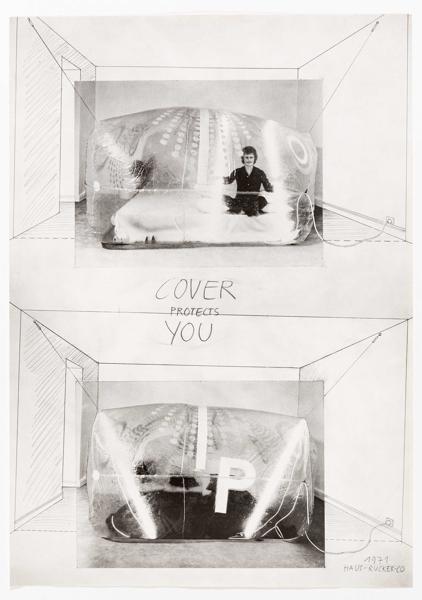 COVER
PROTECTS
YOU
IP
1971
HAUS-RUCKER-CO